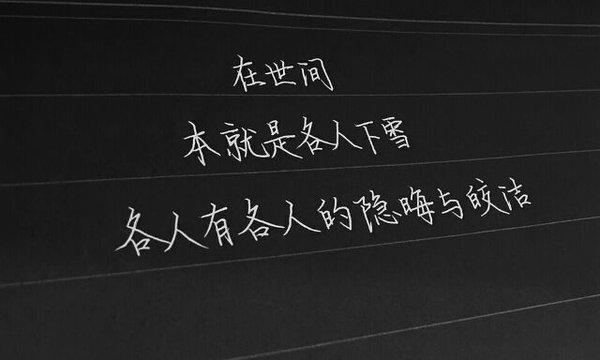 在世间
本就是各人下雪
各人有各人的隐晦与皎洁